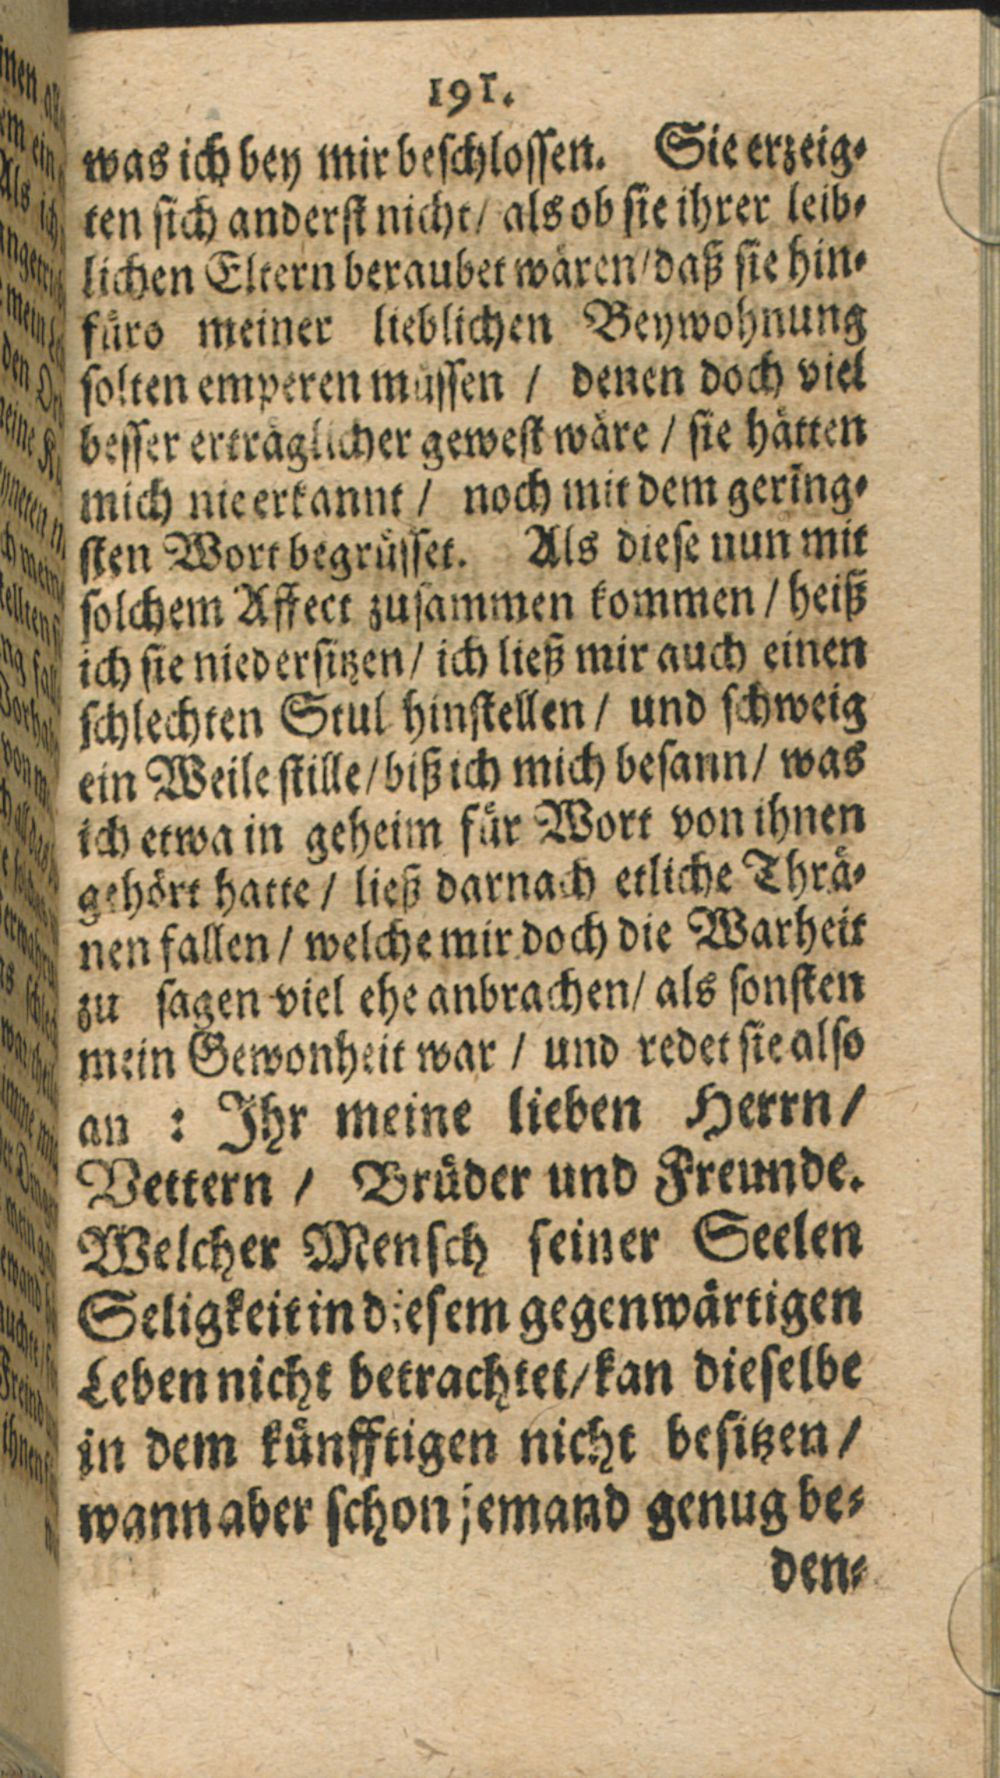 191.
was ich bey mir beschlossen. Sie erzeig-
ten sich anderst nicht / als ob sie ihrer leib-
lichen Eltern beraubet wären / daß sie hin-
füro meiner lieblichen Beywohnung
solten emperen müssen / denen doch viel
besser erträglicher gewest wäre / sie hätten
mich nie erkannt / noch mit dem gering-
sten Wort begrüsset. Als diese nun mit
solchem Affect zusammen kommen / heiß
ich sie niedersitzen / ich ließ mir auch einen
schlechten Stul hinstellen / und schweig
ein Weile stille / biß ich mich besann / was
ich etwa in geheim für Wort von ihnen
gehört hatte / ließ darnach etliche Thrä-
nen fallen / welche mir doch die Warheit
zu sagen viel ehe anbrachen / als sonsten
mein Gewonheit war / und redet sie also
an : Ihr meine lieben Herrn /
Vettern / Brüder und Freunde.
Welcher Mensch seiner Seelen
Seligkeit in diesem gegenwärtigen
Leben nicht betrachtet / kan dieselbe
in dem künfftigen nicht besitzen /
wann aber schon jemand genug be-
den-